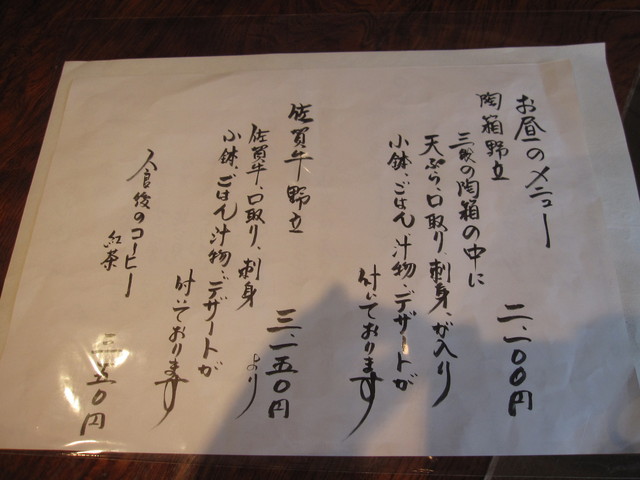 お昼のメニュー
陶箱野立 二、一〇〇円
三段の陶箱の中に
天ぷら、口取り、刺身、が入り
小鉢、ごはん、汁物、デザートが
付いております
佐賀牛野立 三、一五〇円
佐賀牛、口取り、刺身 より
小鉢、ごはん、汁物、デザートが
付いております
食後のコーヒー
紅茶
三五〇円